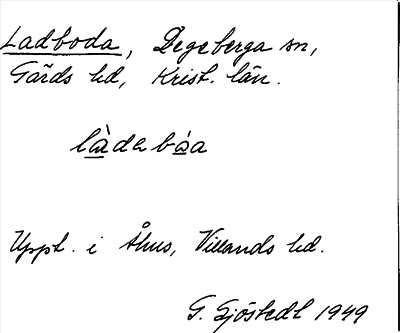 Ladboda, Degeberga sn,
Gärds hd, Krist. län.
làdebóa
Uppt. i Åhus, Villands hd.
G. Sjöstedt 1949